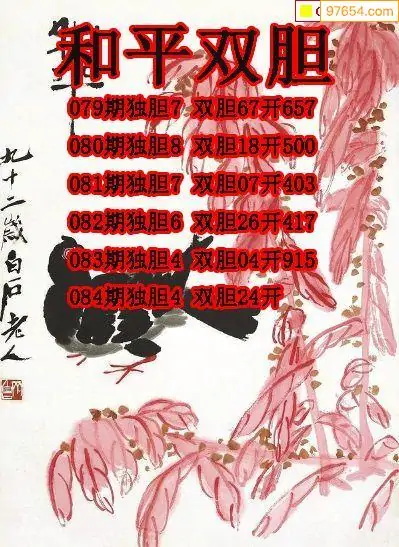 97654.com
和平双胆
079期独胆7 双胆67开657
080期独胆8 双胆18开500
081期独胆7 双胆07开403
082期独胆6 双胆26开417
083期独胆4 双胆04开915
084期独胆4 双胆24开
九十二岁白石老人